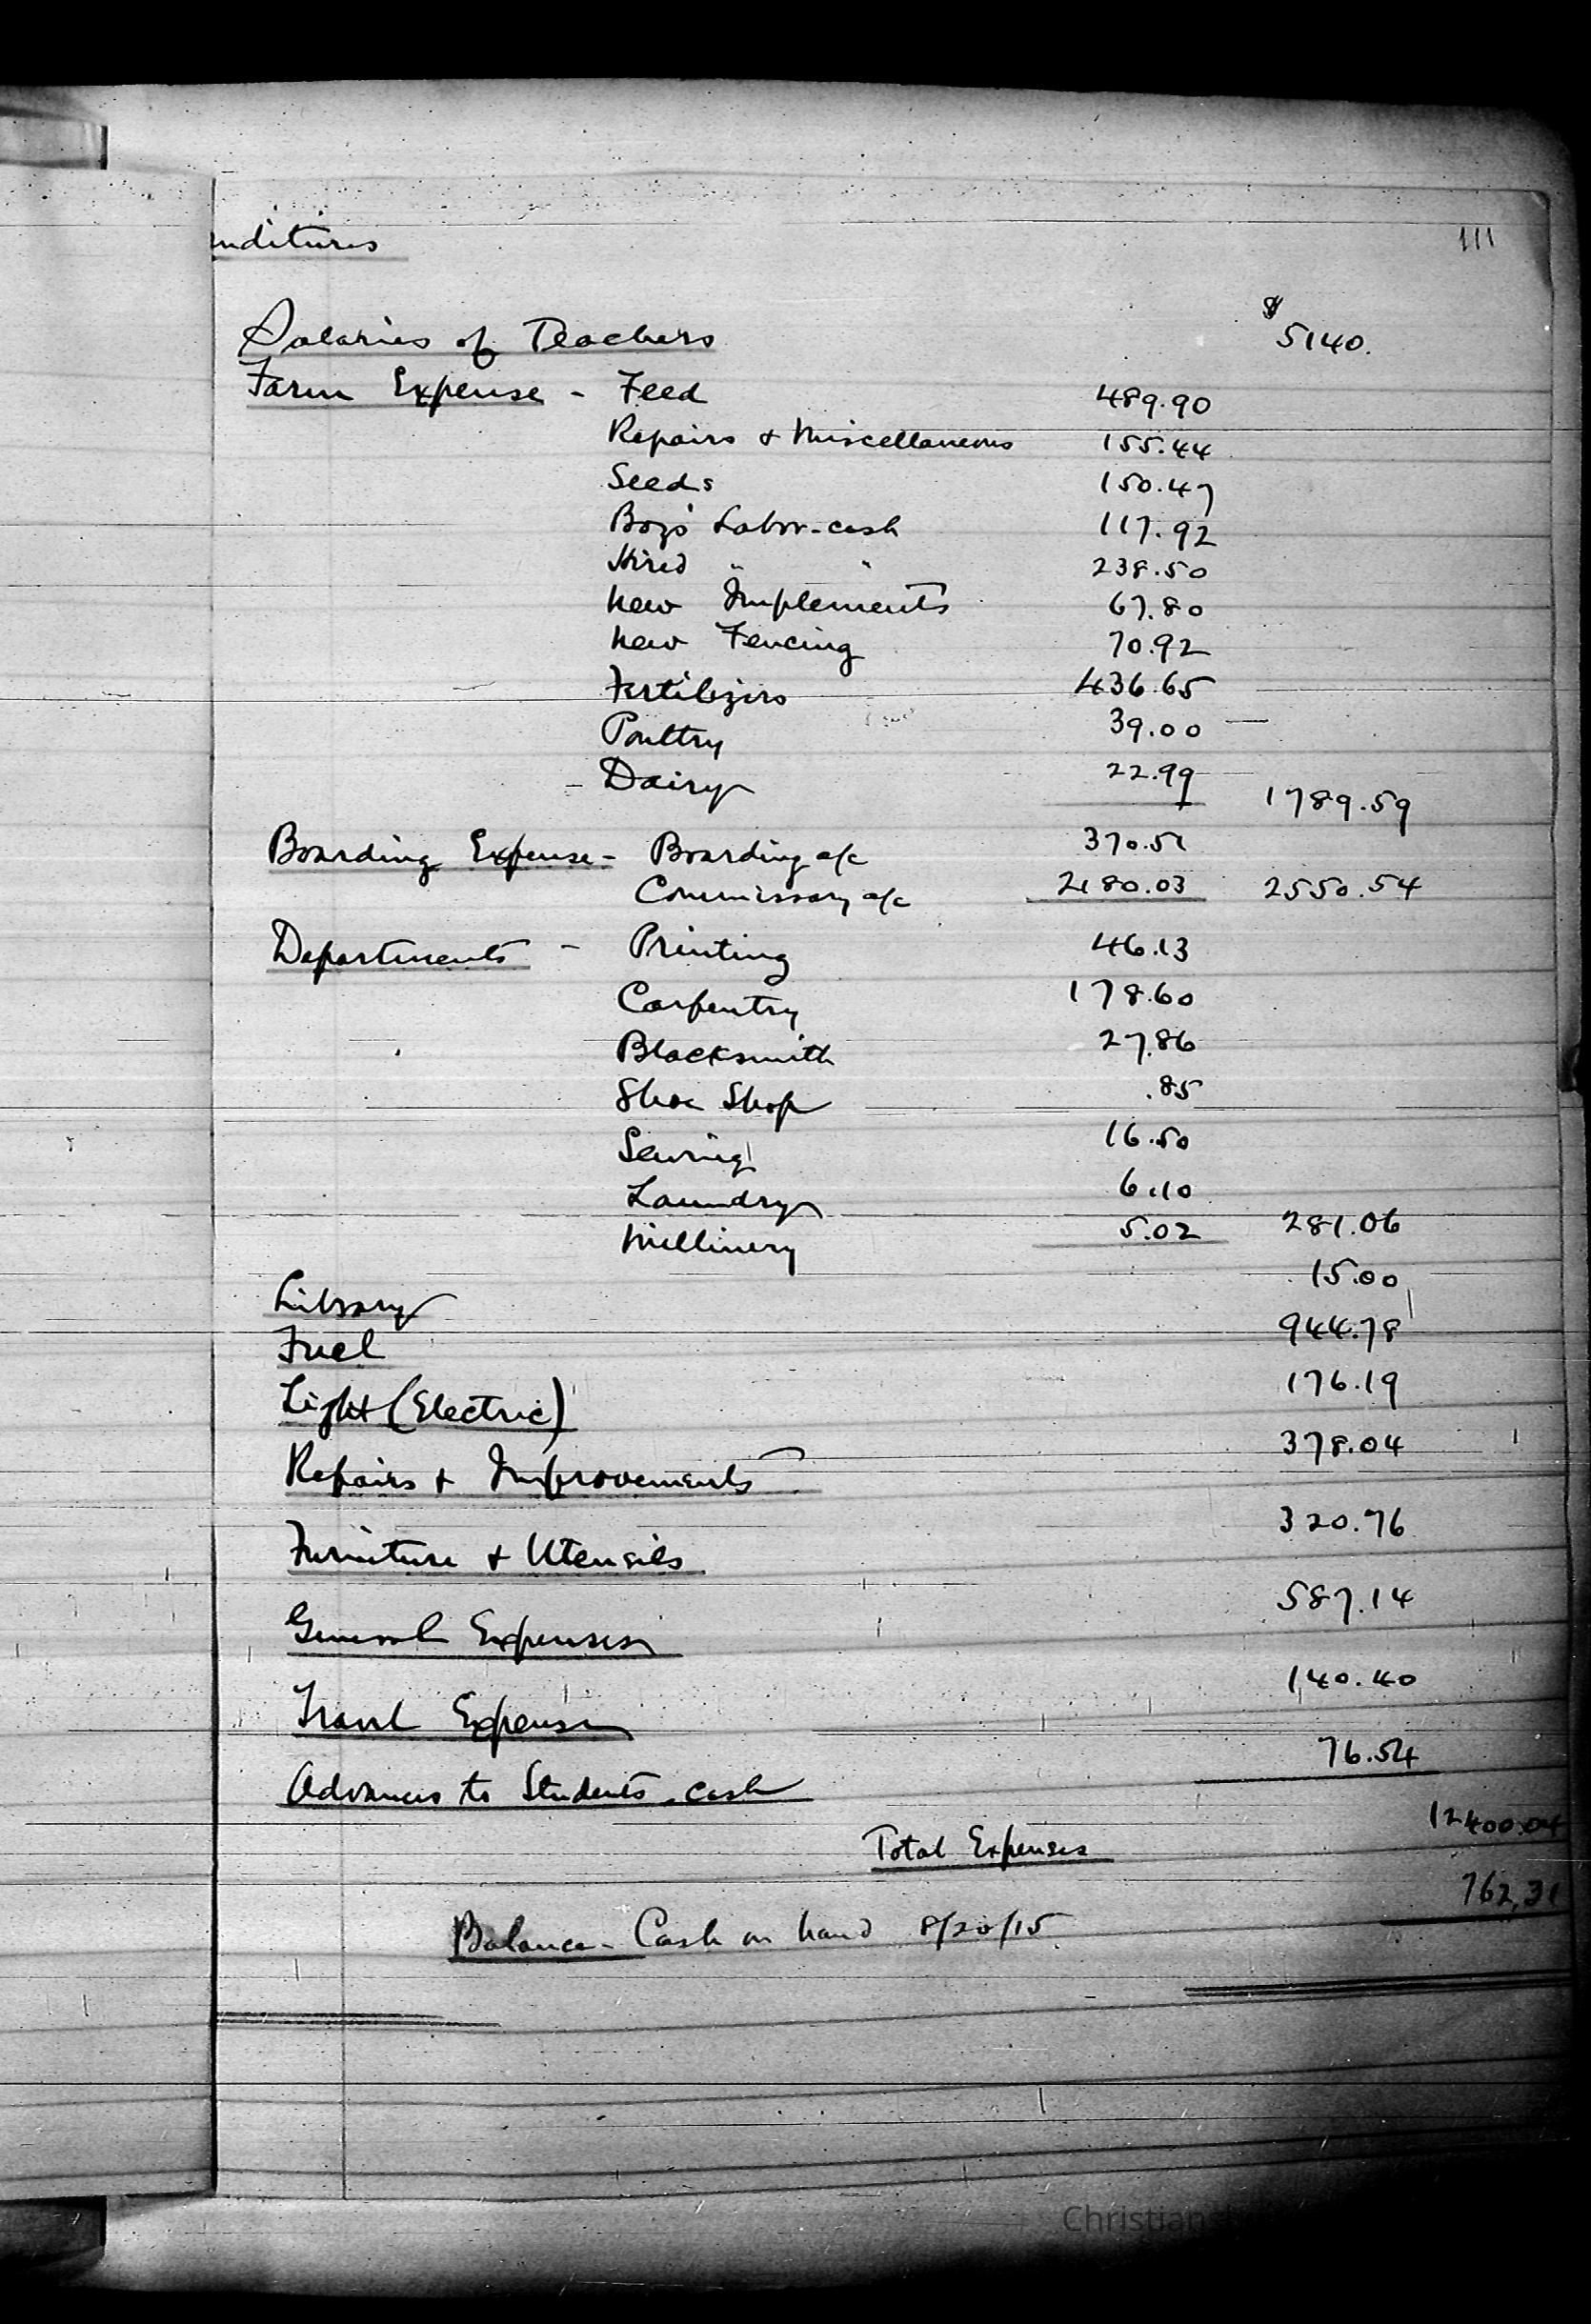 nditures
111
$
Salaries of Teachers 5140.
Farm Expense - Feed 489.90
Repairs & Miscellaneous 155.44
Seeds 150.47
Boys' Labor-cash 117.92
Hired " " 238.50
New Implements 67.80
New Fencing 70.92
Fertilizers 436.65
Poultry 39.00
- Dairy 22.99 1789.59
Boarding Expense - Boarding a/c 370.51
Commissary a/c 2180.03 2550.54
Departments - Printing 46.13
Carpentry 178.60
Blacksmith 27.86
Shoe Shop .85
Sewing 16.50
Laundry 6.10
Millinery 5.02 281.06
Library 15.00
Fuel 944.78
Light (Electric) 176.19
Repairs & Improvements 378.04
Furniture & Utensils 320.76
General Expenses 587.14
Travel Expenses 140.40
Advances to Students - cash 76.54
Total Expenses 12400.04
Balance - Cash on hand 8/20/15 762.31
Christian